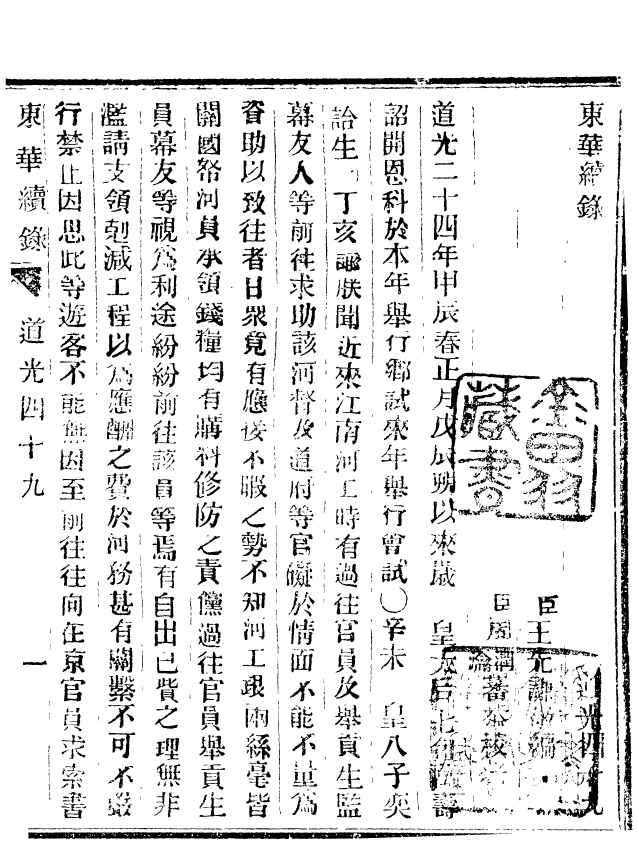 東華續錄
道光四十九
臣王先謙編
臣周潤蕃恭校
道光二十四年甲辰春正月戊辰朔以來歲 皇太后七旬萬壽
詔開恩科於本年舉行鄉試來年舉行會試〇辛未 皇八子奕
詥生 丁亥諭朕聞近來江南河工時有過往官員及舉貢生監
幕友人等前往求助該河督及道府等官礙於情面不能不量爲
資助以致往者日眾竟有應接不暇之勢不知河工艱難絲毫皆
關國帑河員承領錢糧均有購料修防之責儻過往官員舉貢生
員幕友等視爲利途紛紛前往該員等焉有自出已貲之理無非
濫請支領剋減工程以爲應酬之費於河務甚有關繫不可不嚴
行禁止因思此等遊客不能無因至前往往向在京官員求索書
東華續錄 道光四十九 一